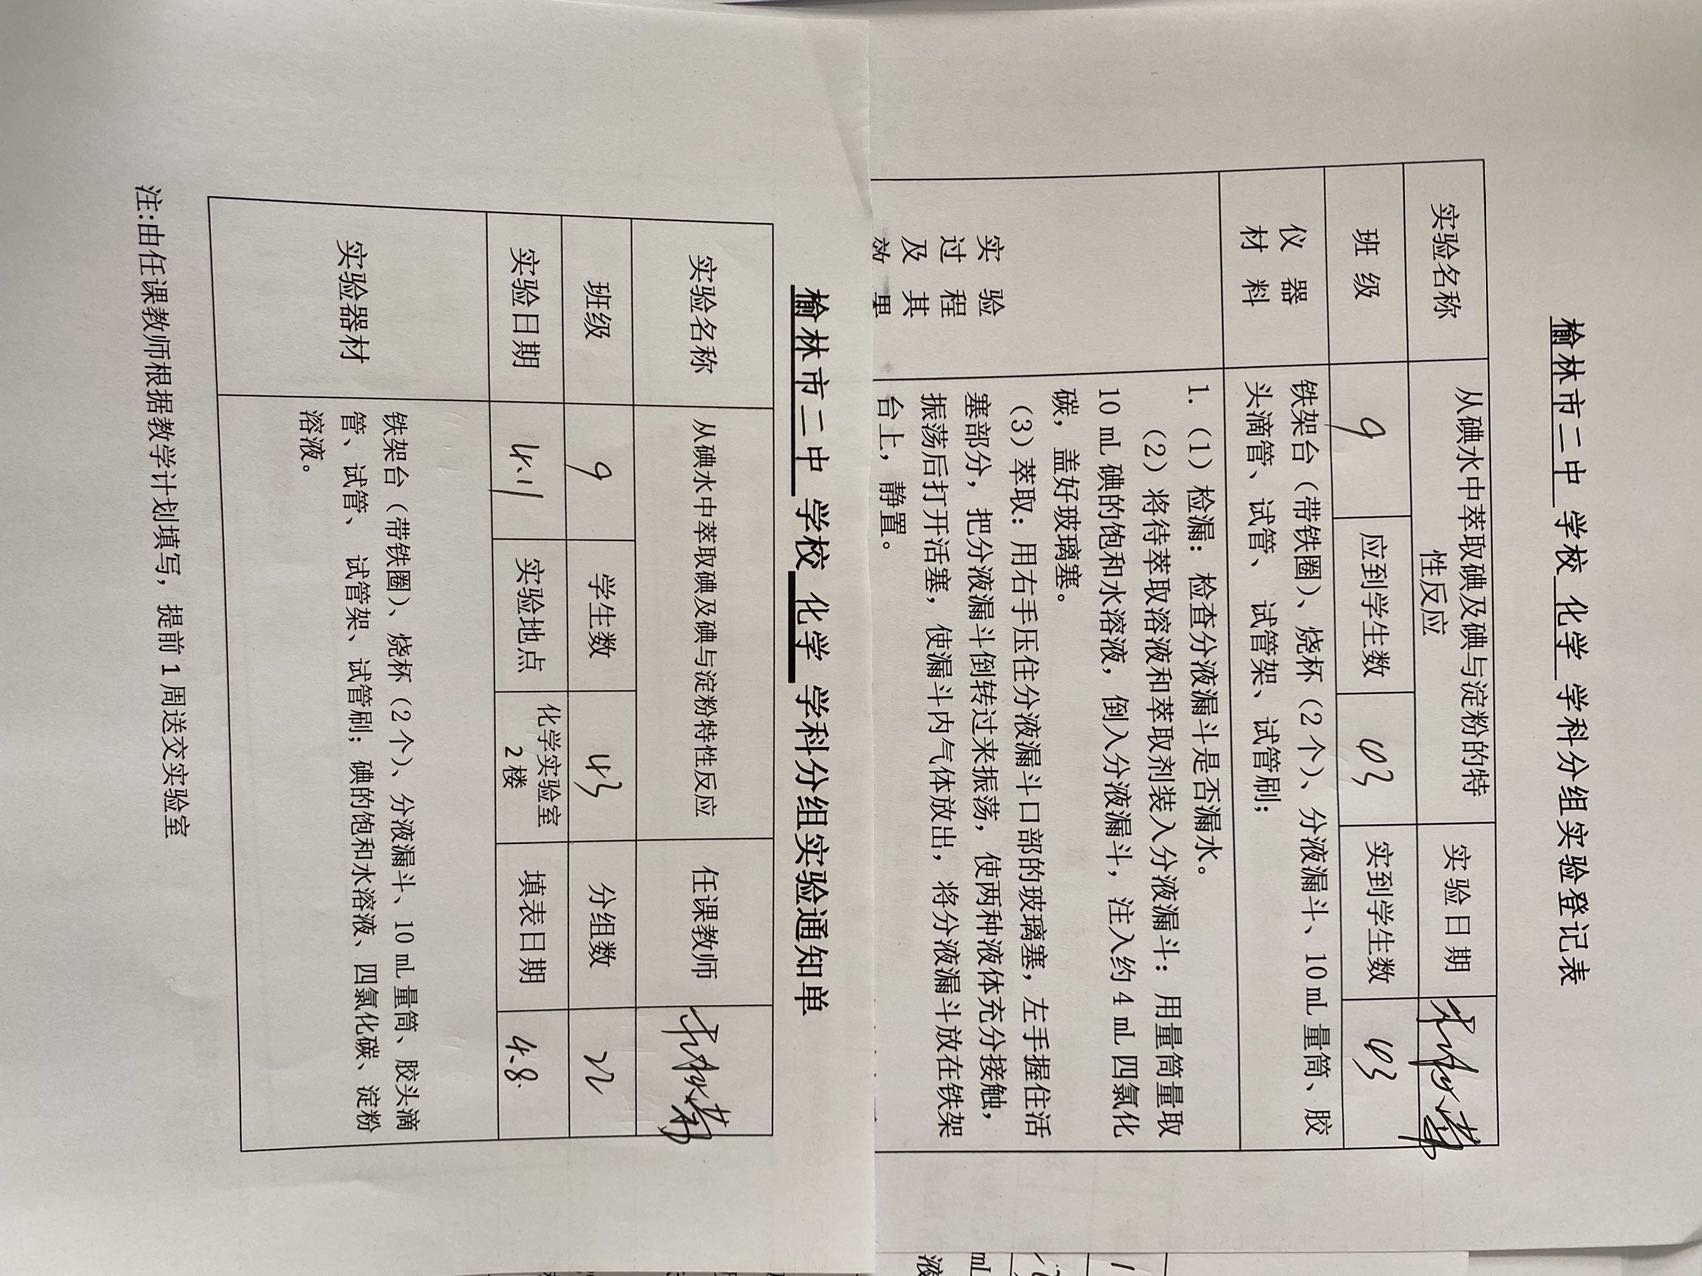 榆林市二中 学校 化学 学科分组实验登记表
实验名称 从碘水中萃取碘及碘与淀粉的特
性反应 实验日期
班 级 9 应到学生数 43 实到学生数 43
仪 器
材 料
铁架台（带铁圈）、烧杯（2 个）、分液漏斗、10 mL 量筒、胶
头滴管、试管、 试管架、试管刷；
实 验
过 程
及 其
效 果
1.（1）检漏：检查分液漏斗是否漏水。
（2）将待萃取溶液和萃取剂装入分液漏斗：用量筒量取
10 mL 碘的饱和水溶液，倒入分液漏斗，注入约 4 mL 四氯化
碳，盖好玻璃塞。
（3）萃取：用右手压住分液漏斗口部的玻璃塞，左手握住活
塞部分，把分液漏斗倒转过来振荡，使两种液体充分接触，
振荡后打开活塞，使漏斗内气体放出，将分液漏斗放在铁架
台上，静置。
榆林市二中 学校 化学 学科分组实验通知单
实验名称 从碘水中萃取碘及碘与淀粉特性反应 任课教师
班级 9 学生数 43 分组数 22
实验日期 4.11 实验地点 化学实验室
2 楼 填表日期 4.8.
实验器材
铁架台（带铁圈）、烧杯（2 个）、分液漏斗、10 mL 量筒、胶头滴
管、试管、 试管架、试管刷；碘的饱和水溶液、四氯化碳、淀粉
溶液。
注:由任课教师根据教学计划填写，提前 1 周送交实验室
mL
液